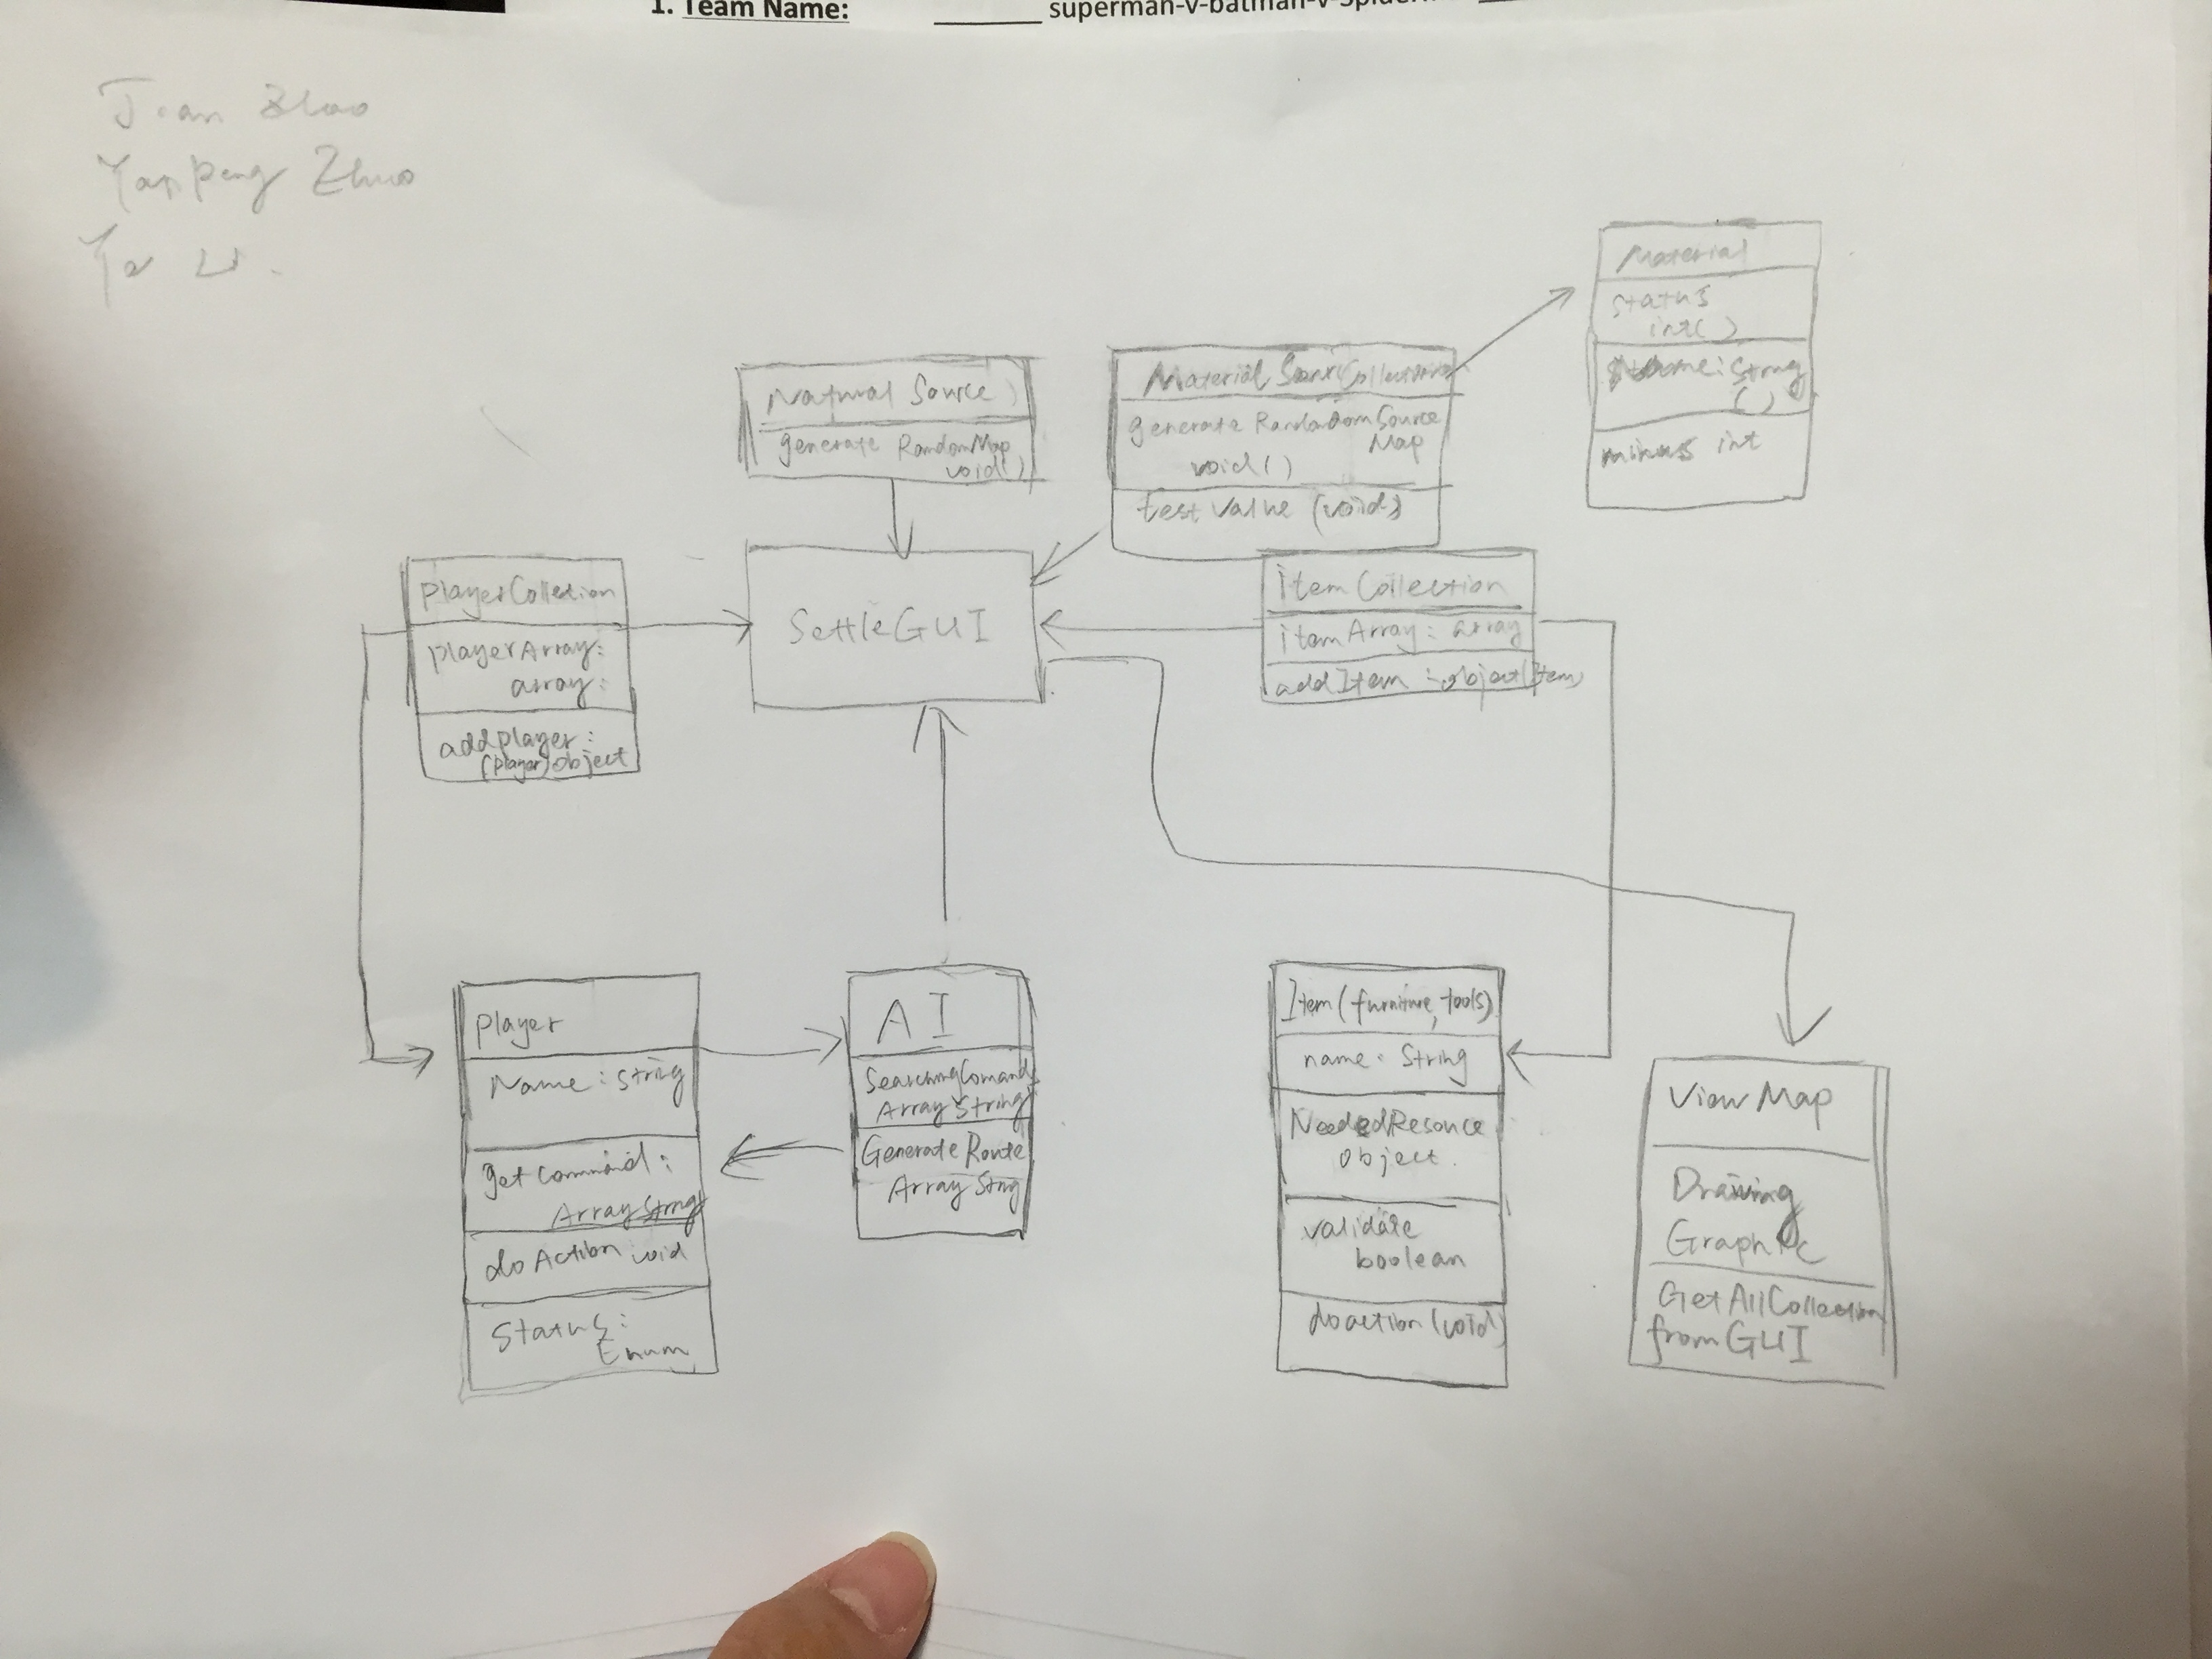 1. Team Name: superman-v-batman-v-
Jian Zhao
Yanpeng Zhuo
Li
Material
status
int()
name: String
()
minuss int
Natural Source
generate RandomMap
void()
Material Collection
generate RandadomSource
Map
void()
test Value (void)
playerCollection
playerArray:
array:
addplayer:
(player) object
SettleGUI
itemCollection
itemArray: array
addItem : object(Item)
player
Name: string
get command:
ArrayString
do Action void
Status:
Enum
AI
SearchingComands
Array String
Generate Route
Array Stng
Item (furniture, tools)
name: String
NeededResonce
object.
validate
boolean
doaction (void)
View Map
Drawing
Graphic
Get All Collection
from GUI